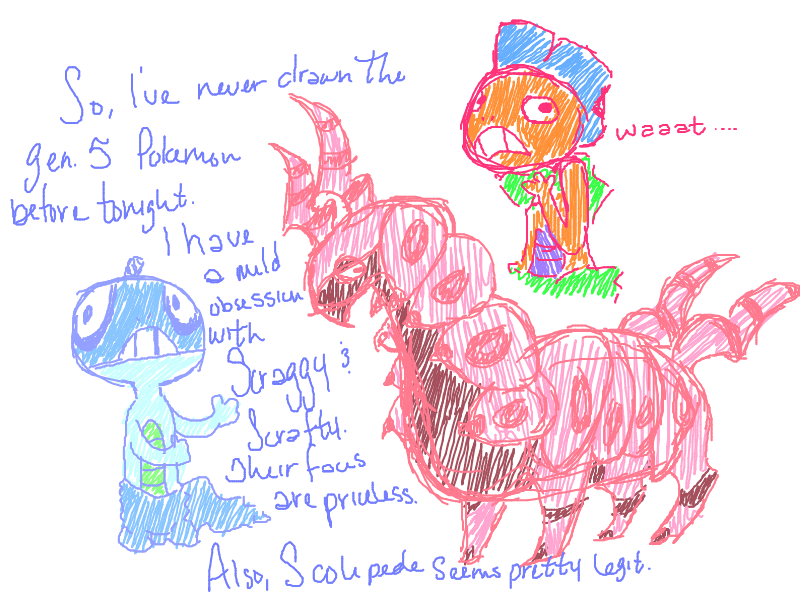 So, I've never drawn the
gen. 5 Pokemon
before tonight.
I have
a mild
obsession
with
Scraggy &
Scrafty.
Their faces
are priceless.
waaat ....
Also, Scolipede seems pretty legit.